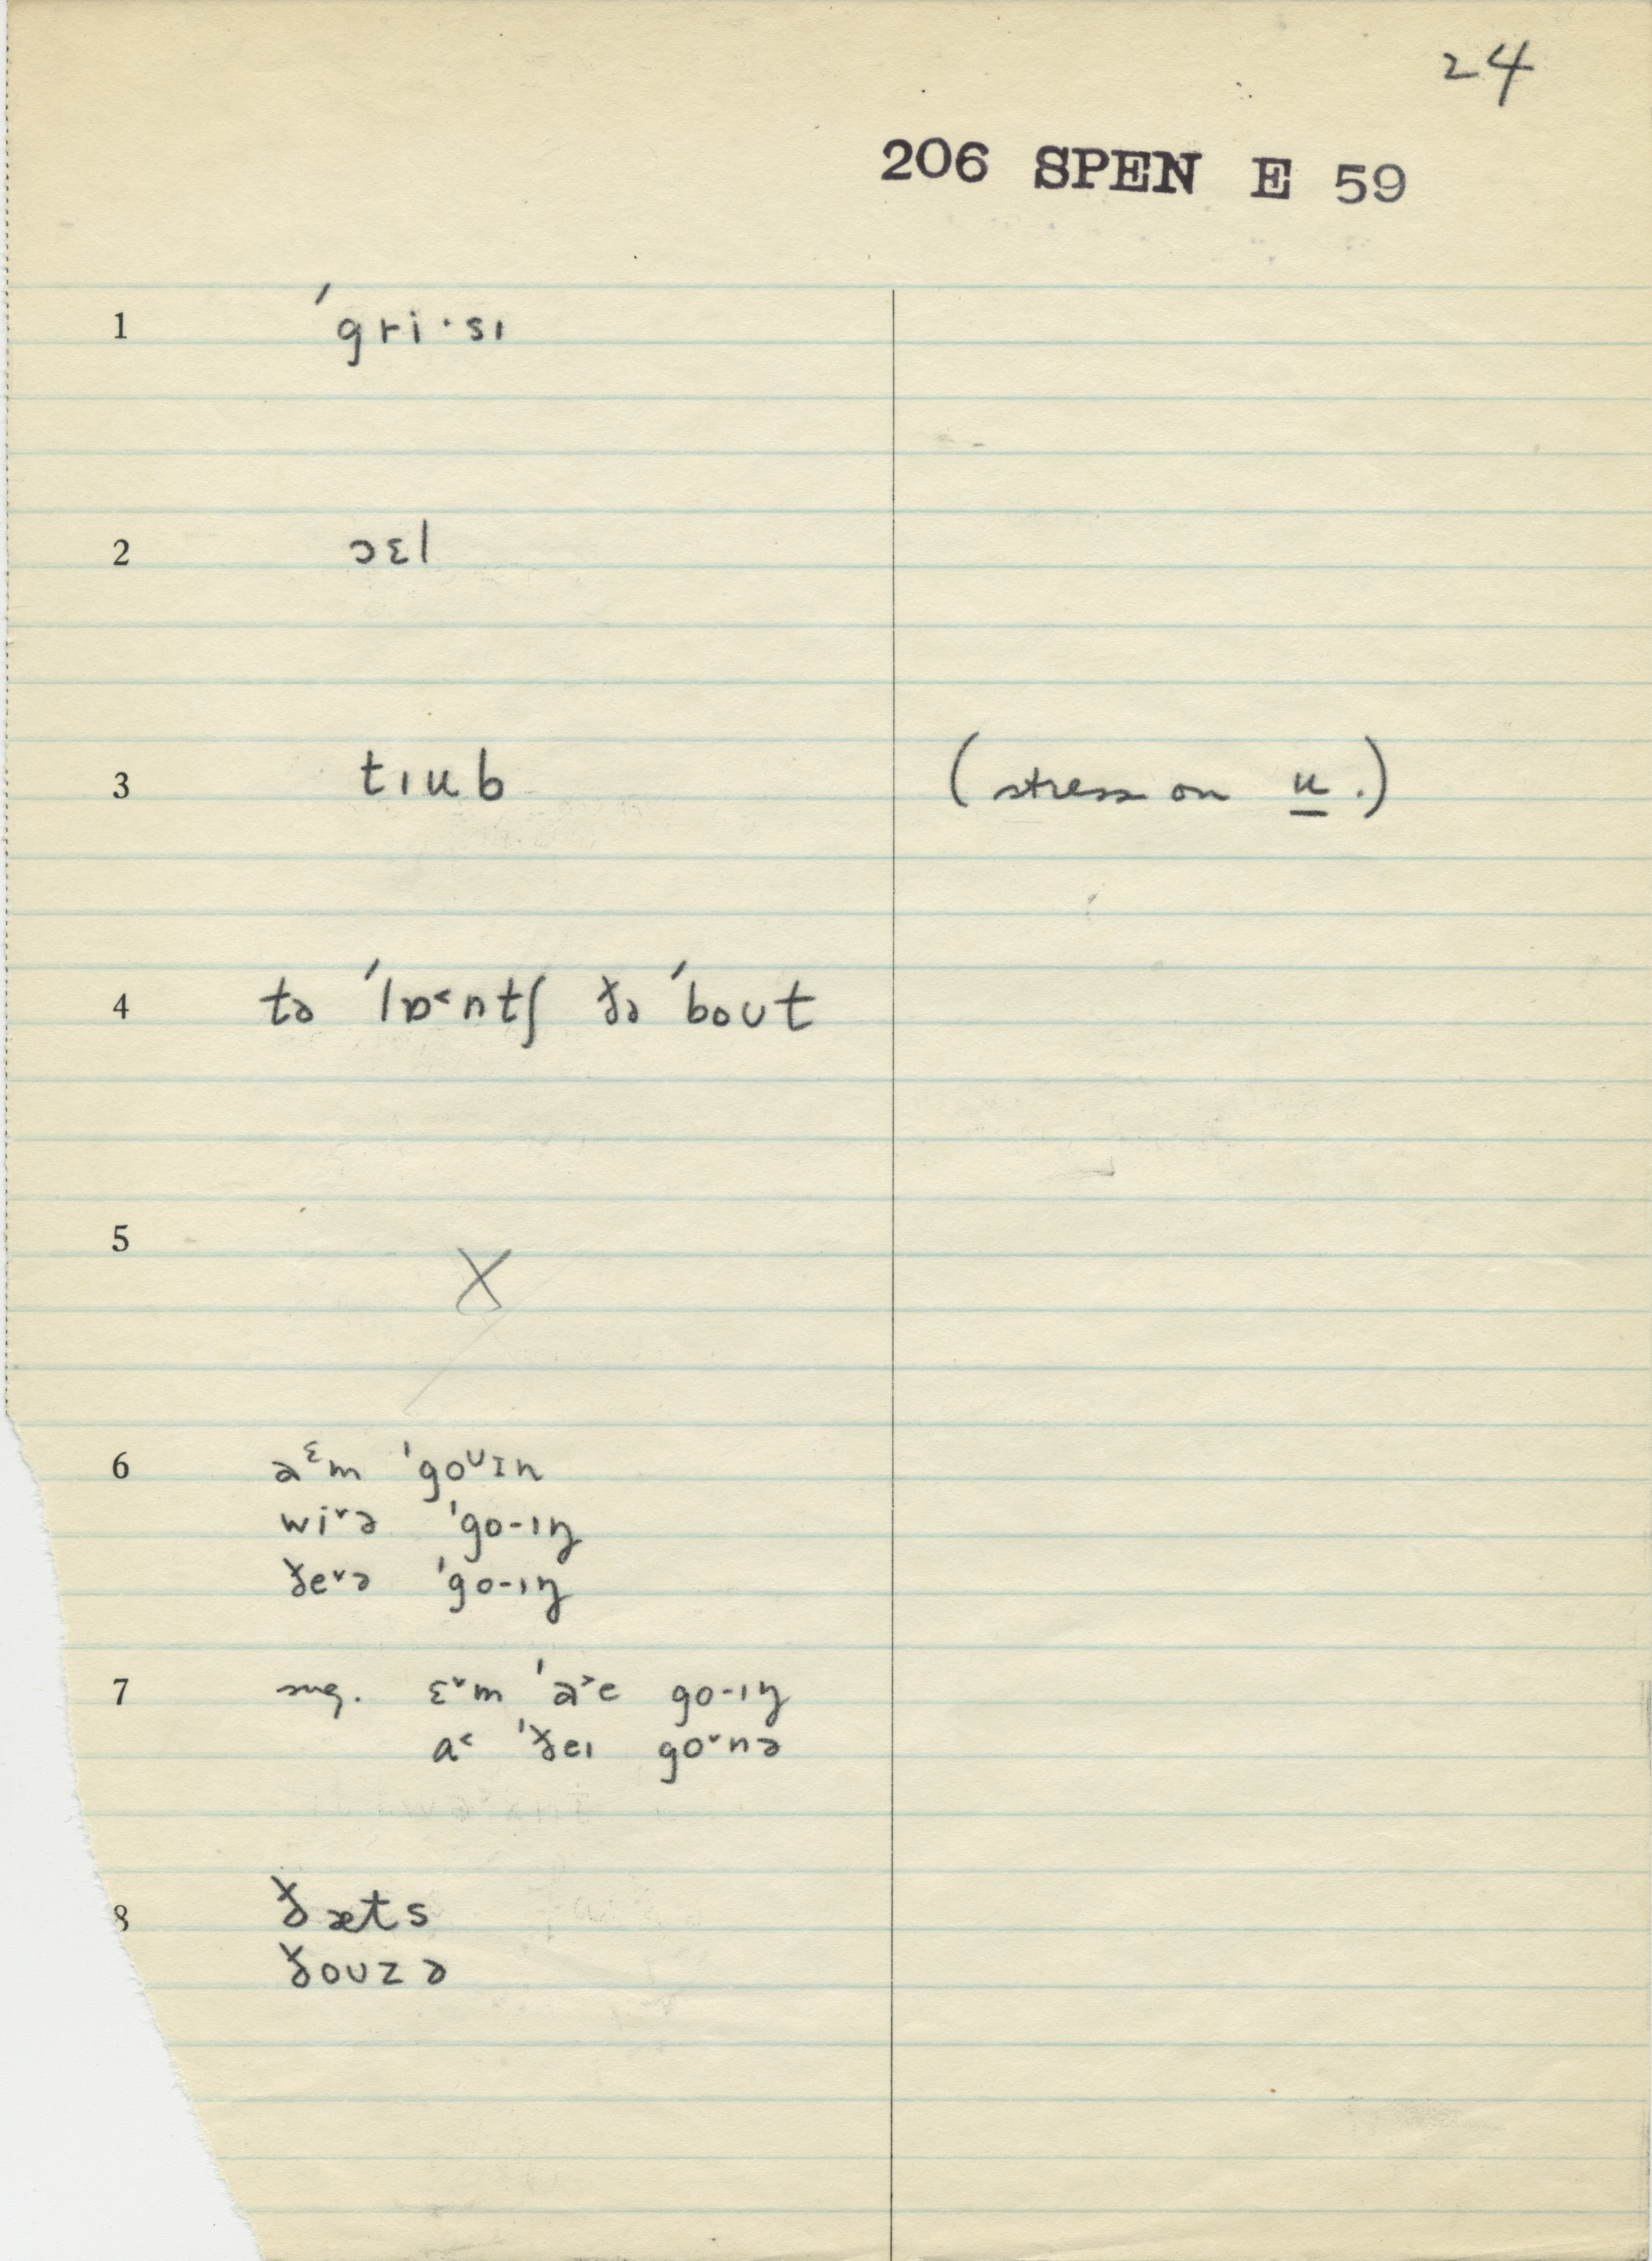 24
206 SPEN E 59
1 ˈgri·sɪ
2 ɔɛl
3 tɪub (stress on u.)
4 tə ˈlɒ˂ntʃ ðə ˈbout
5 X
6 aᵋm ˈgoᶸɪn
wi˅ə ˈgo-ɪŋ
ðe˅ə ˈgo-ɪŋ
7 sug. ɛ˅m ˈa˃e go-ɪŋ
a˂ ˈðeɪ go˅nə
8 ðæts
ðouzə